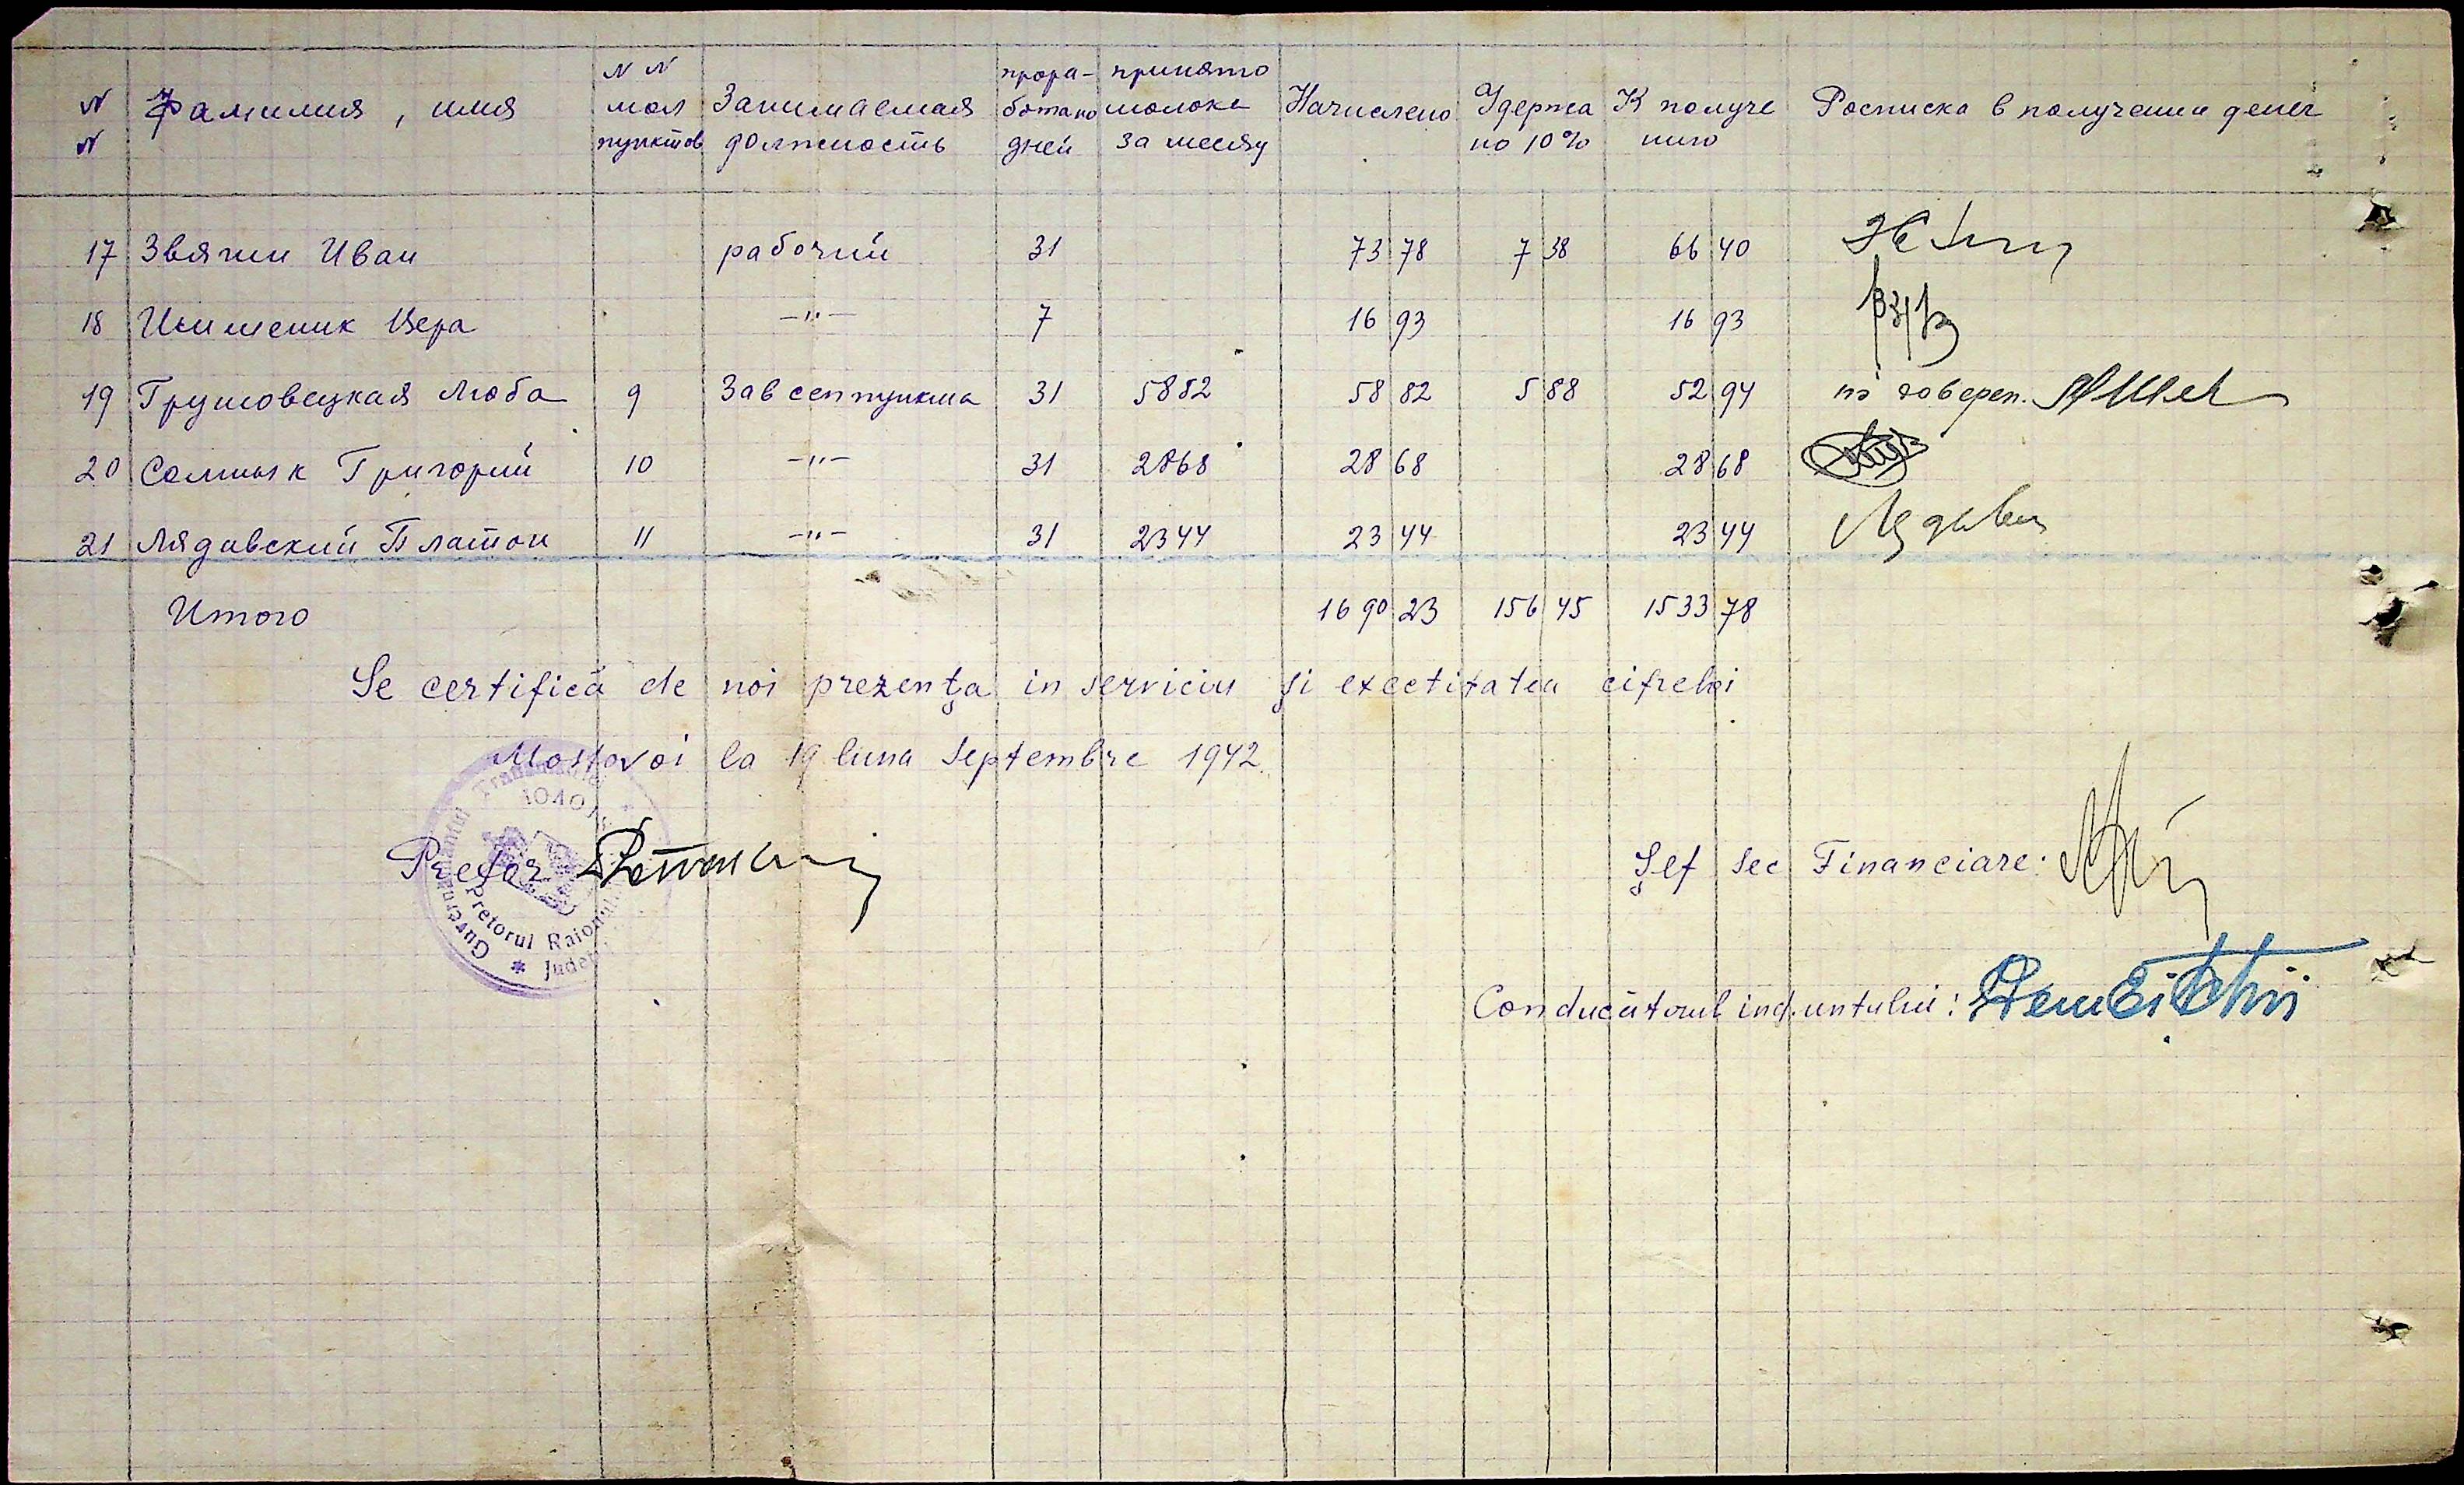 N N Фамилия, имя N N мол пунктов Занимаемая должность прора- ботано дней принято молока за месяц Начислено Удержа но 10% К получе нию Росписка в получении денег
17 Звягин Иван рабочий 31 73 78 7 38 66 40
18 Вера -"- 7 16 93 16 93
19 Грушовецкая Люба 9 Зав сеппункта 31 5882 58 82 5 88 52 94 по доверен.
20 Григорий 10 -"- 31 2868 28 68 28 68
21 Лядавский Платон 11 -"- 31 2344 23 44 23 44
Итого 1690 23 156 45 1533 78
Se certifică de noi prezenţa in serviciu şi exectitatea cifrelor
Mostovoi la 19 luna Septembre 1942.
Pretor
Şef Sec Financiare:
Conducătorul
Guvernământul Transnistriei
Pretorul Raionului
Judeţ